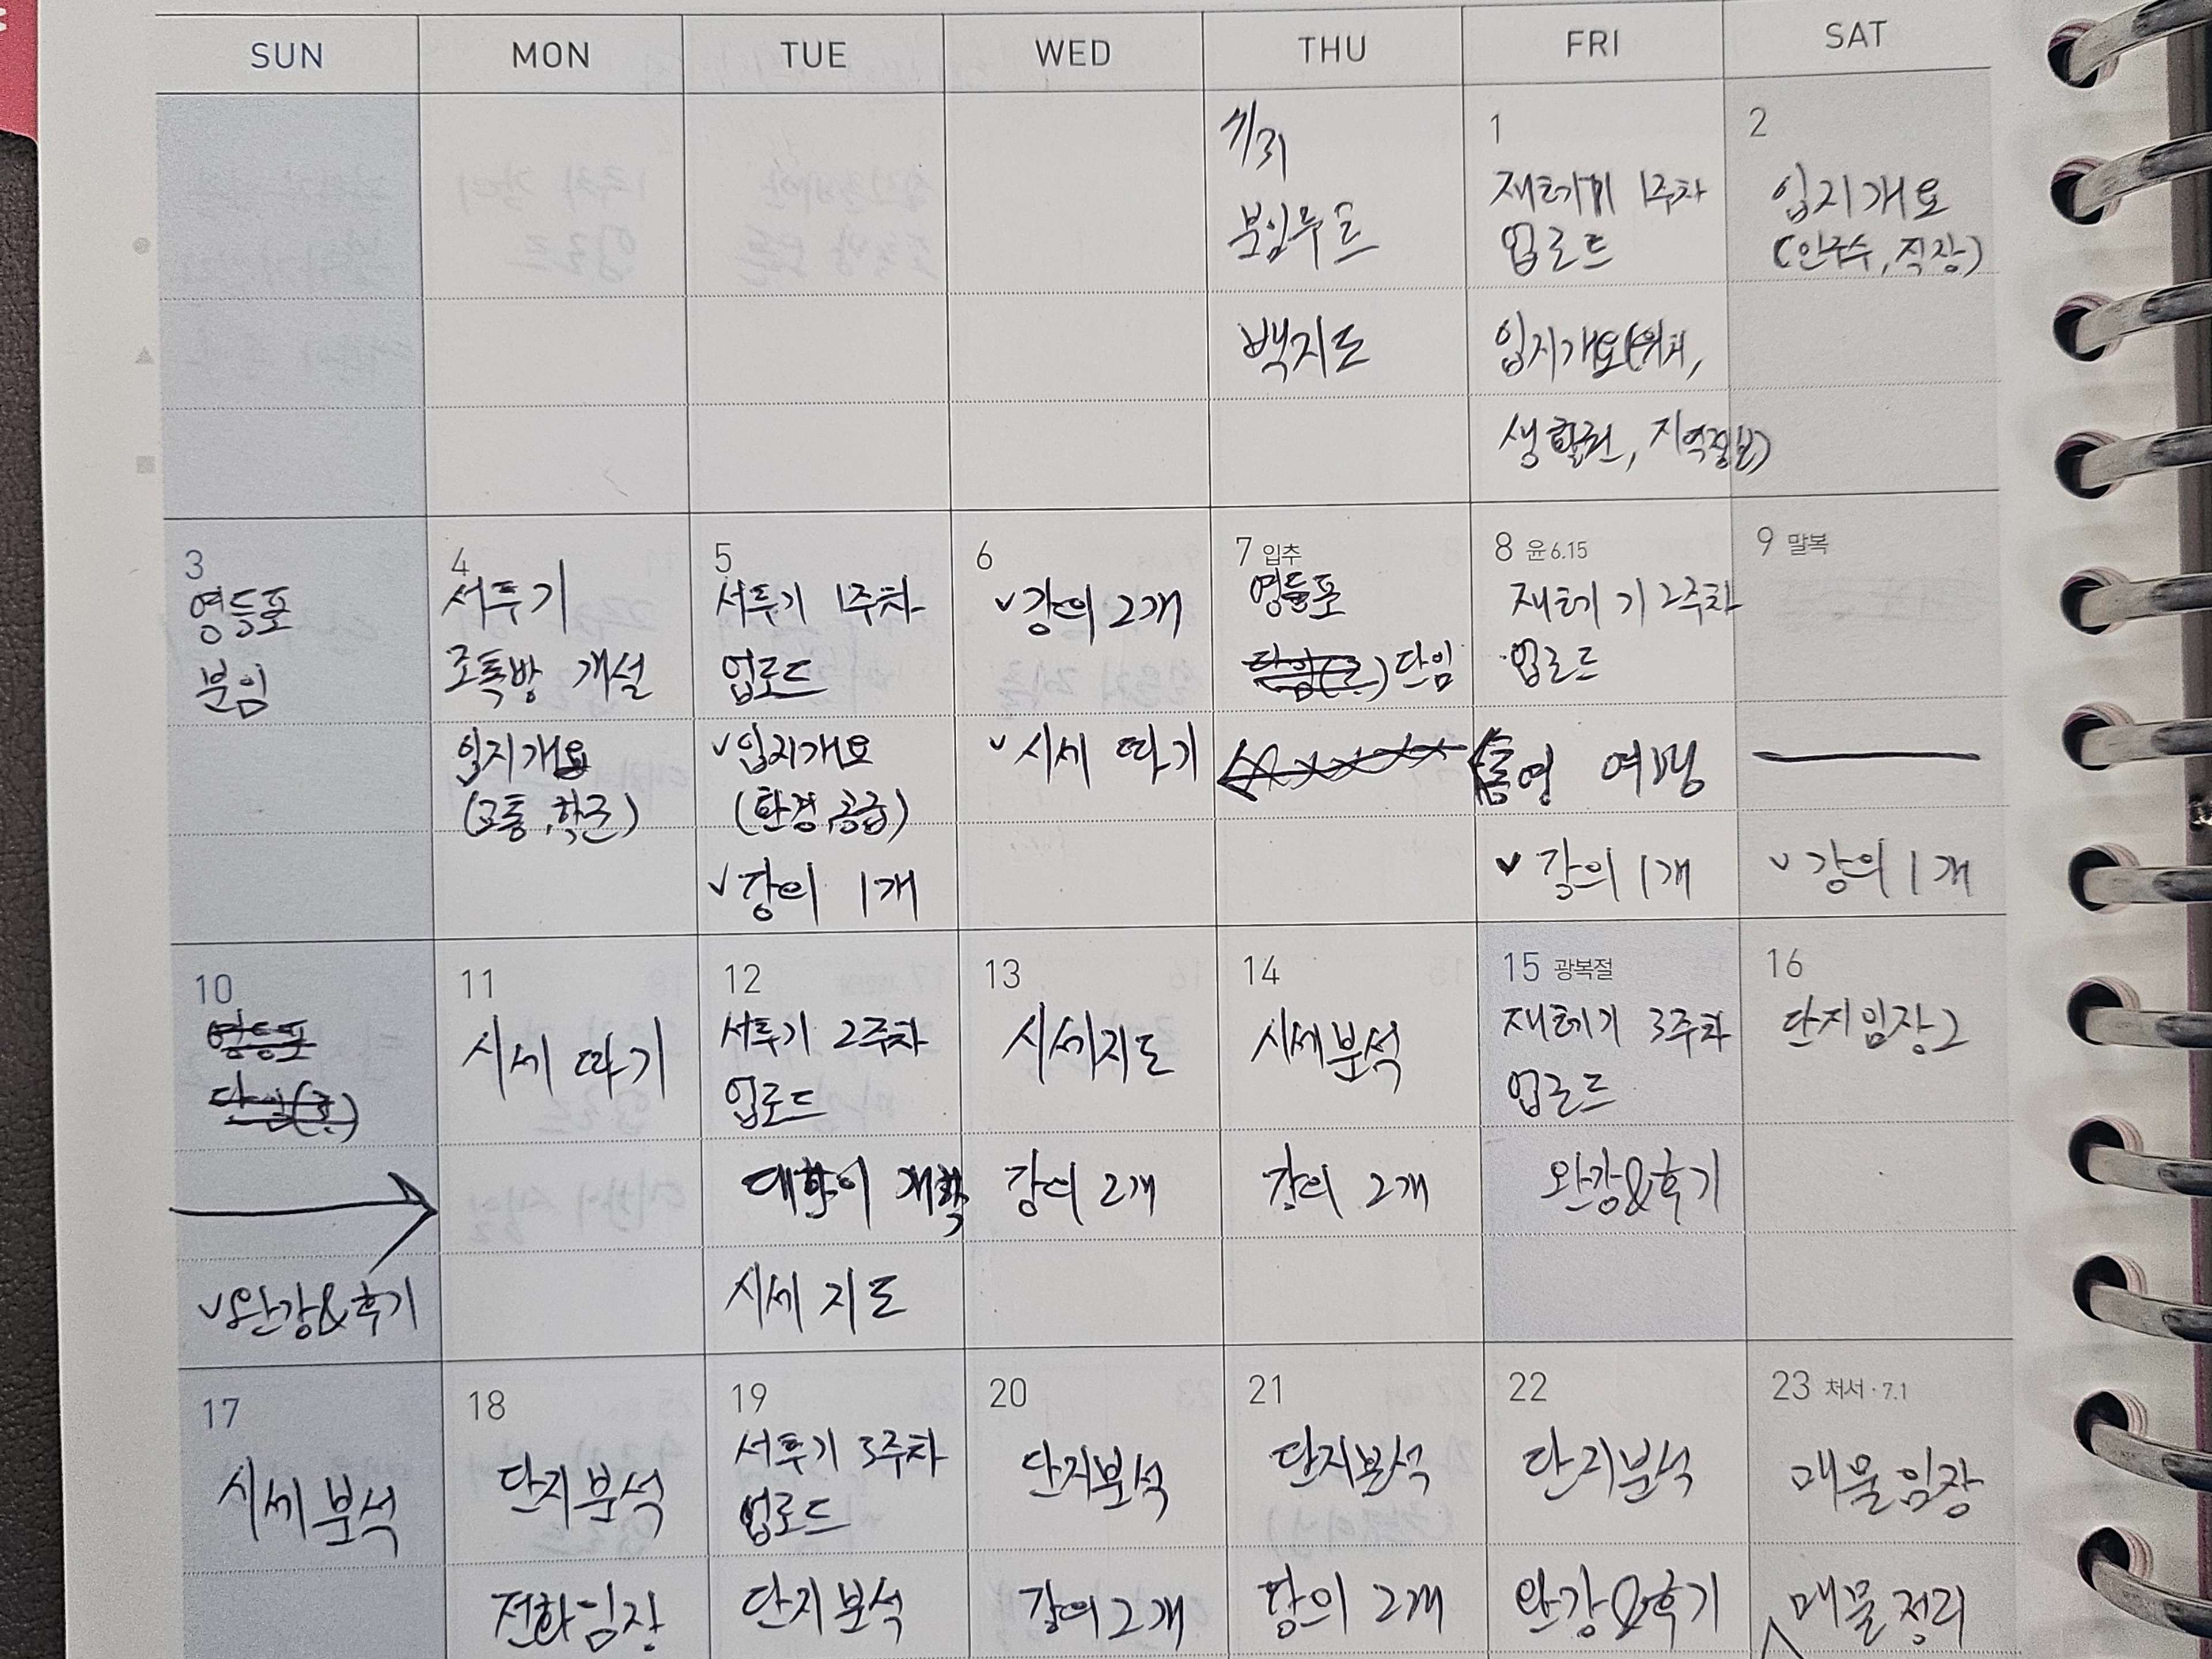 SUN MON TUE WED THU FRI SAT
7/31
분임루트
백지도
1
재테기 1주차
업로드
입지개요(위치,
생활권, 지역정보)
2
입지개요
(인구수, 직장)
3
영등포
분임
4
서투기
조톡방 개설
입지개요
(교통, 학군)
5
서투기 1주차
업로드
✓입지개요
(환경, 공급)
✓강의 1개
6
✓강의 2개
✓시세 따기
7 입추
영등포
단임
8 윤 6.15
재테기 2주차
업로드
통영 여행
✓강의 1개
9 말복
✓강의 1개
10
영등포
✓완강&후기
11
시세 따기
12
서투기 2주차
업로드
개학
시세 지도
13
시세지도
강의 2개
14
시세분석
강의 2개
15 광복절
재테기 3주차
업로드
완강&후기
16
단지임장2
17
시세분석
18
단지분석
전화임장
19
서투기 3주차
업로드
단지분석
20
단지분석
강의 2개
21
단지분석
강의 2개
22
단지분석
완강&후기
23 처서·7.1
매물임장
매물정리